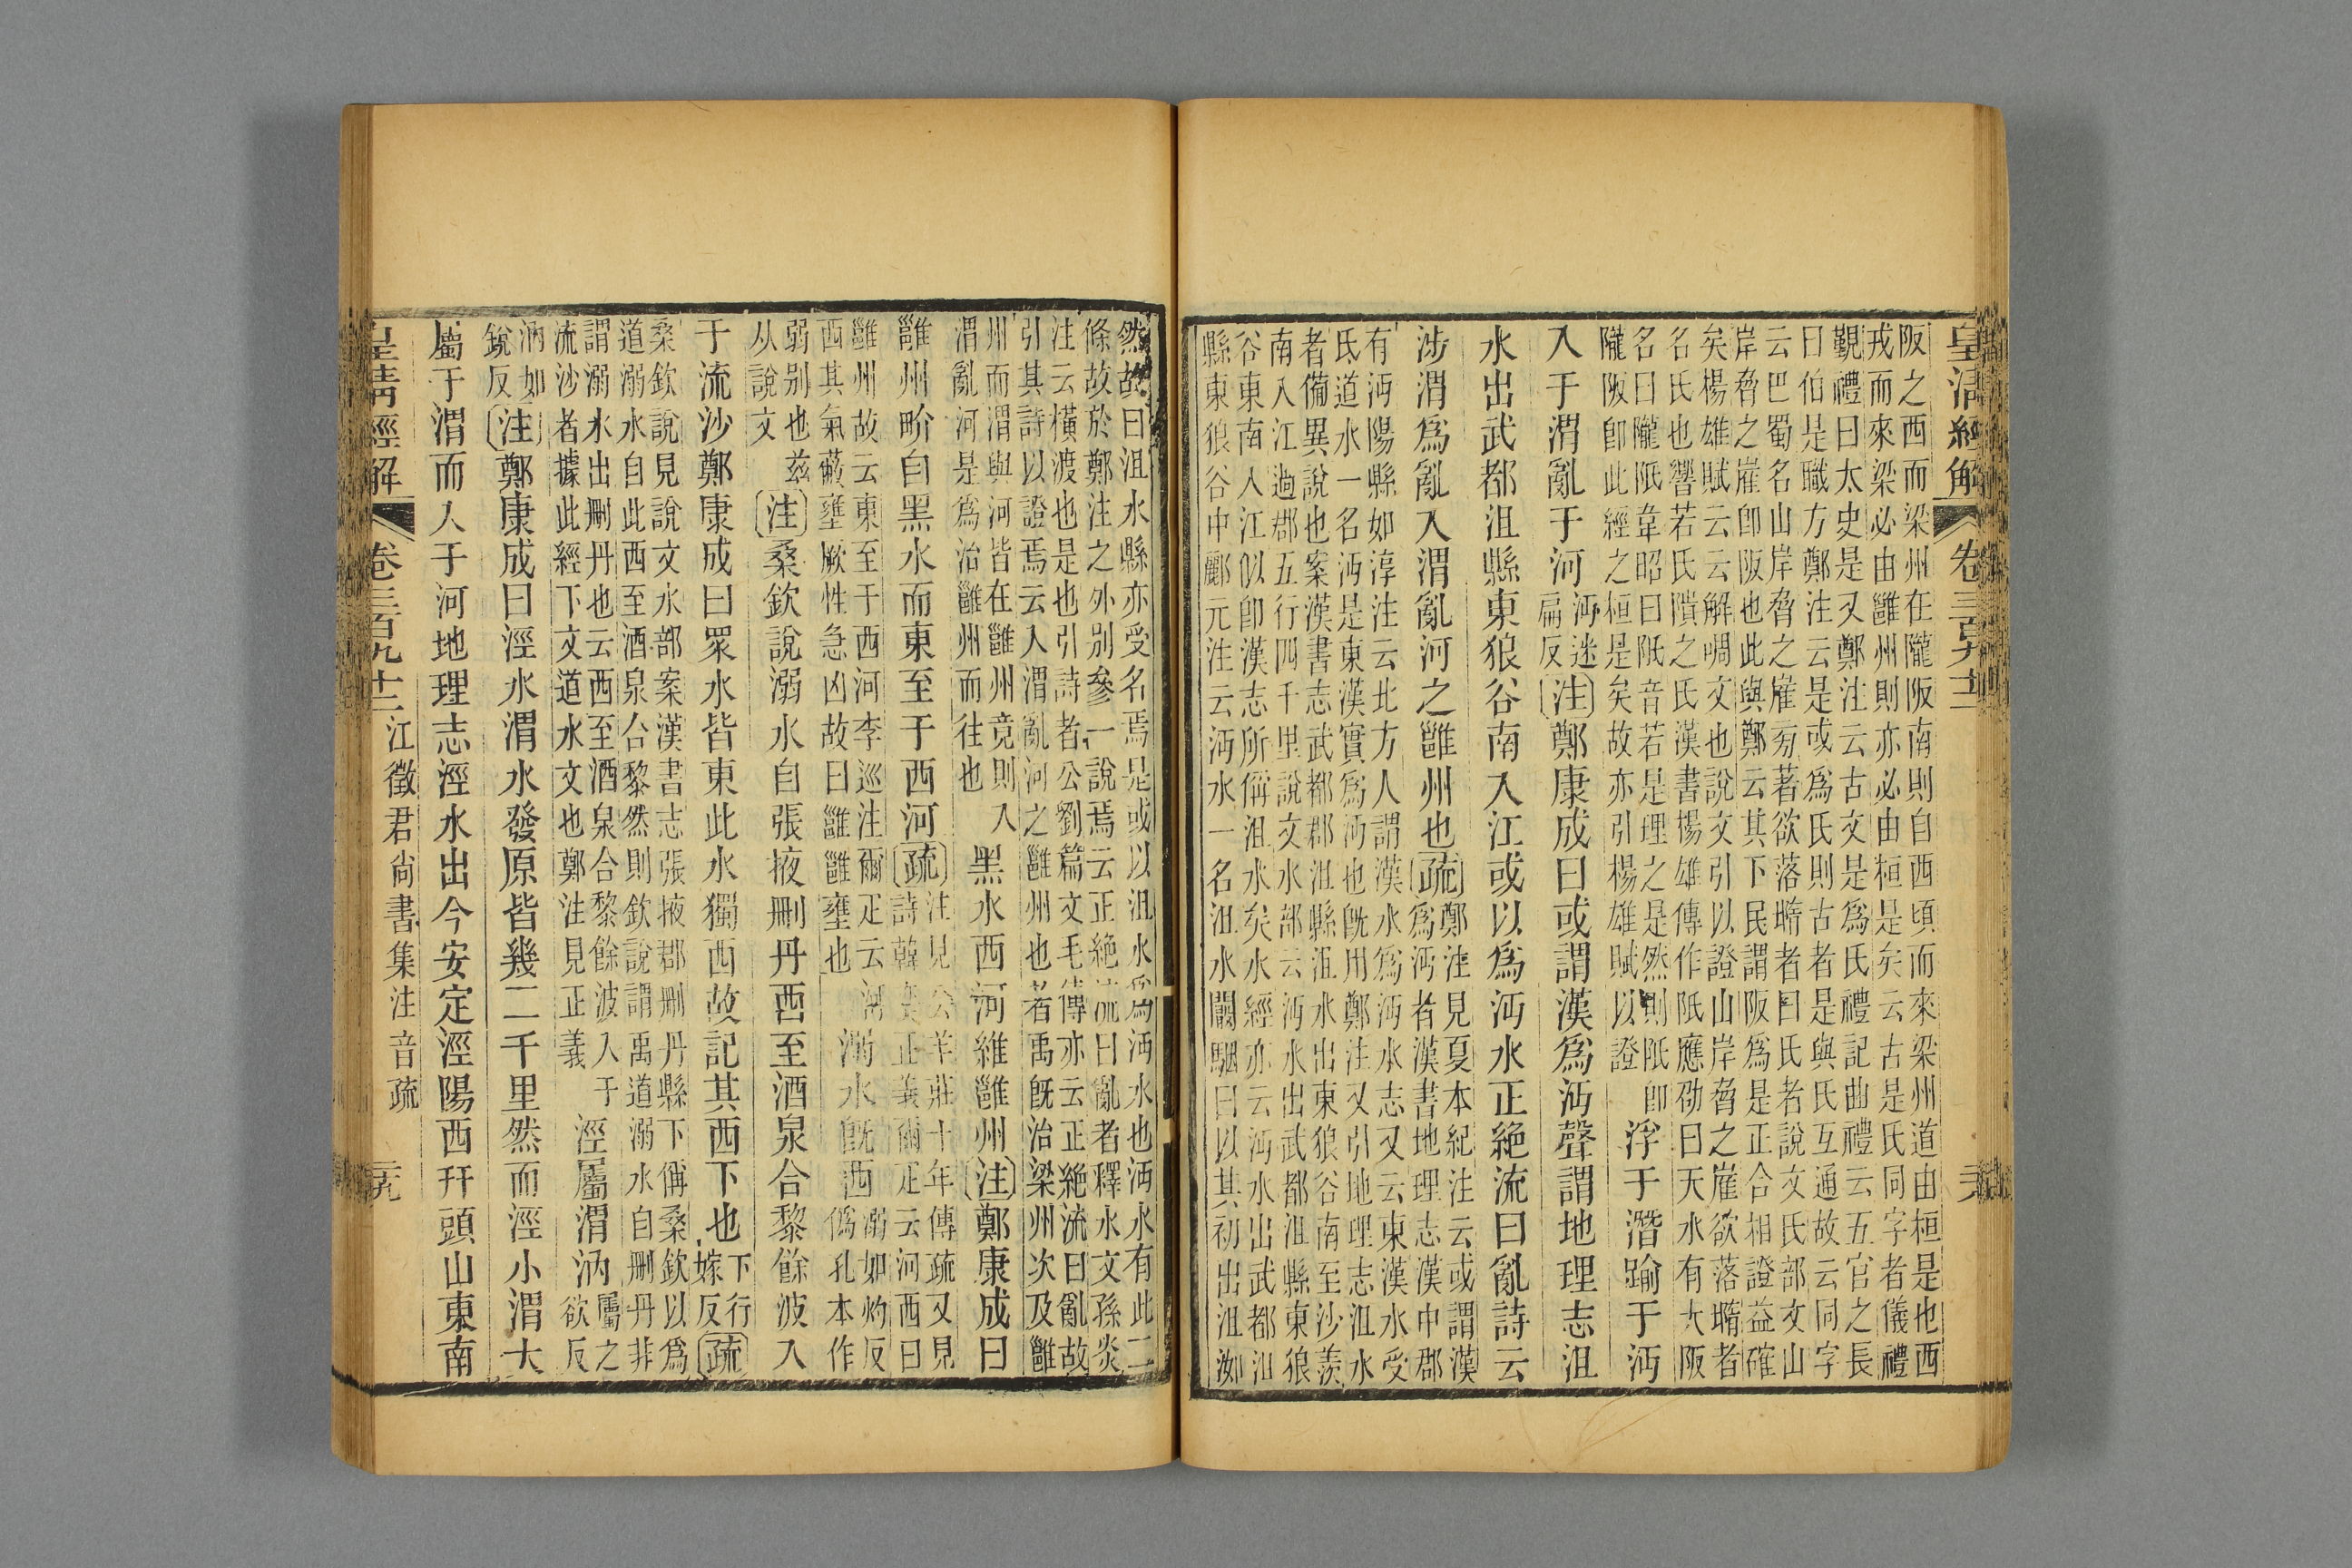 皇清經解 卷三百九十二
阪之西而梁州在隴阪南則自西頃而來梁州道由桓是也西
戎而來梁必由雝州則亦必由桓是矣云古是氏同字者儀禮
覲禮曰太史是又鄭注云古文是爲氏禮記曲禮云五官之長
曰伯是職方鄭注云是或爲氏則古者是與氏互通故云同字
云巴蜀名山岸脅之㢈旁著欲落㙐者曰氏者說文氏部文山
岸脅之㢈卽阪也此與鄭云其下民謂阪爲是正合相證益確
矣楊雄賦云云解嘲文也說文引以證山岸脅之㢈欲落㙐者
名氏也響若氏隤之氏漢書楊雄傳作阺應劭曰天水有大阪
名曰隴阺韋昭曰阺音若是理之是然則阺卽
隴阪卽此經之桓是矣故亦引楊雄賦以證
浮于潛踰于沔
入于渭亂于河
沔迷
扁反
注鄭康成曰或謂漢爲沔聲謂地理志沮
水出武都沮縣東狼谷南入江或以爲沔水正絶流曰亂詩云
涉渭爲亂入渭亂河之雝州也
疏鄭注見夏本紀注云或謂漢
爲沔者漢書地理志漢中郡
有沔陽縣如淳注云北方人謂漢水爲沔水志又云東漢水受
氐道水一名沔是東漢實爲沔也旣用鄭注又引地理志沮水
者備異說也案漢書志武都郡沮縣沮水出東狼谷南至沙羨
南入江過郡五行四千里說文水部云沔水出武都沮縣東狼
谷東南入江似卽漢志所偁沮水矣水經亦云沔水出武都沮
縣東狼谷中酈元注云沔水一名沮水闞駰曰以其初出沮洳
然故曰沮水縣亦受名焉是或以沮水爲沔水也沔水有此二
條故於鄭注之外别參一說焉云正絶流曰亂者釋水文孫炎
注云橫渡也是也引詩者公劉篇文毛傳亦云正絶流曰亂故
引其詩以證焉云入渭亂河之雝州也者禹旣治梁州次及雝
州而渭與河皆在雝州竟則入
渭亂河是爲治雝州而往也
黑水西河維雝州
注鄭康成曰
雝州畍自黑水而東至于西河
疏注見公羊莊十年傳疏又見
詩韓奕正義爾疋云河西曰
雝州故云東至于西河李巡注爾疋云河
西其氣蔽壅厥性急凶故曰雝雝壅也
溺水旣西
溺如灼反
僞孔本作
弱别也兹
从說文
注桑欽說溺水自張掖刪丹西至酒泉合黎餘波入
于流沙鄭康成曰眾水皆東此水獨西故記其西下也
下行
嫁反
疏
桑欽說見說文水部案漢書志張掖郡刪丹縣下偁桑欽以爲
道溺水自此西至酒泉合黎然則欽說謂禹道溺水自刪丹非
謂溺水出刪丹也云西至酒泉合黎餘波入于
流沙者據此經下文道水文也鄭注見正義
涇屬渭汭
屬之
欲反
汭如
銳反
注鄭康成曰涇水渭水發原皆幾二千里然而涇小渭大
屬于渭而入于河地理志涇水出今安定涇陽西幵頭山東南
皇清經解 卷三百九十二 江徵君尙書集注音疏